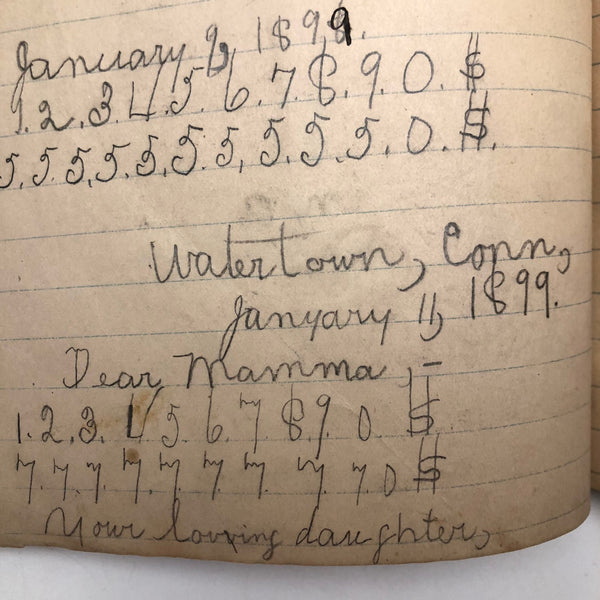 January 9, 1899.
1.2.3.4.5.6.7.8.9.0.$
5.5.5.5.5.5.5.5.5.5.0.$.
Watertown, Conn,
Janyary 11, 1899.
Dear Mamma,-
1.2.3.4 5 6.7 8.9. 0 $
7.7.7.7.7.7 7. 7. 7.0 $
Your lovving daughter,